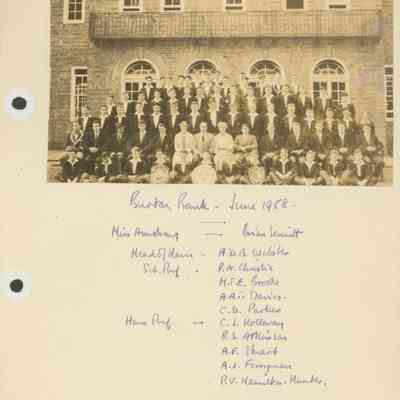 Burton Bank - June 1958 -
Miss Armstrong —
Head of House - A.D.B. Webster
Sch. Pref - P.N. Christie
M.J.E. Brooke
Davies
C.D. Parkes
House Pref - C.L. Holloway
R.S. Atkinson
A.E. Stuart
A.J. Fenyman
P.V. Hamilton-Hunter.